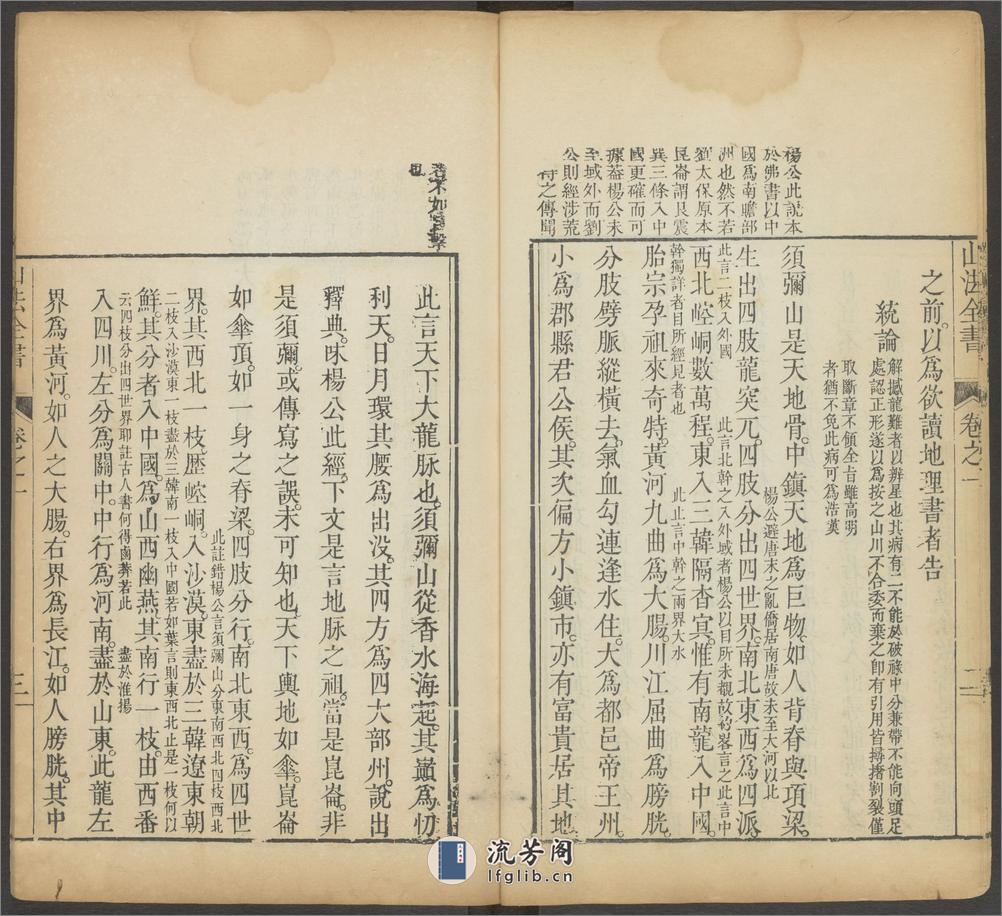 楊公此說本
於佛書以中
國爲南贍部
洲也然不若
劉太保原本
崑崙謂艮震
巽三條入中
國更確而可
據蓋楊公未
至域外而劉
公則經涉荒
之傳聞
山法全書
卷之一
二
之前以爲欲讀地理書者告
統論
解撼龍難者以辨星也其病有二不能於破祿中分兼帶不能向頭足
處認正形遂以爲按之山川不合委而棄之卽有引用皆撏撦割裂僅
取斷章不領全旨雖高明
者猶不免此病可爲浩嘆
須彌山是天地骨中鎮天地爲巨物如人背脊與項梁
生出四肢龍突兀四肢分出四世界南北東西爲四派
此言二枝入外國
楊公避唐末之亂僑居南唐故未至大河以北
西北崆峒數萬程東入三韓隔杳冥惟有南龍入中國
此言北幹之入外域者楊公以目所未覩故畧言之此言中
幹獨詳者目所經見者也
胎宗孕祖來奇特黃河九曲爲大腸川江屈曲爲膀胱
此言中幹之兩界大水
分肢劈脈縱橫去氣血勾連逢水住大爲都邑帝王州
小爲郡縣君公侯其次偏方小鎮市亦有富貴居其地
若不如
也
此言天下大龍脉也須彌山從香水海起其巔爲忉
利天日月環其腰爲出沒其四方爲四大部州說出
釋典味楊公此經下文是言地脉之祖當是崑崙非
是須彌或傳寫之誤未可知也天下輿地如傘崑崙
如傘頂如一身之脊梁四肢分行南北東西爲四世
此註錯楊公言須彌山分東南西北四枝西北
界其西北一枝歷崆峒入沙漠東盡於三韓遼東朝
二枝入沙漠東一枝盡於三韓南一枝入中國若如葉言則東西北止是一枝何以
鮮其分者入中國爲山西幽燕其南行一枝由西番
云四枝分出四世界耶註古人書何得鹵莽若此
盡於淮揚
入四川左分爲關中中行爲河南盡於山東此龍左
界爲黃河如人之大腸右界爲長江如人膀胱其中
山法全書
卷之一
三
流芳阁
lfglib.cn